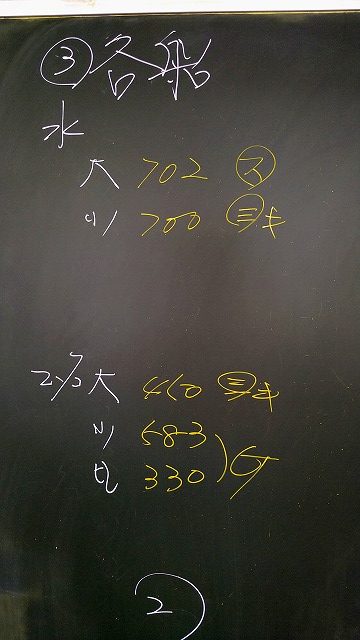 ③各船
水
大 702 ㋜
小 700 ㋯キ
大 460 ㋯キ
小 583
330
2